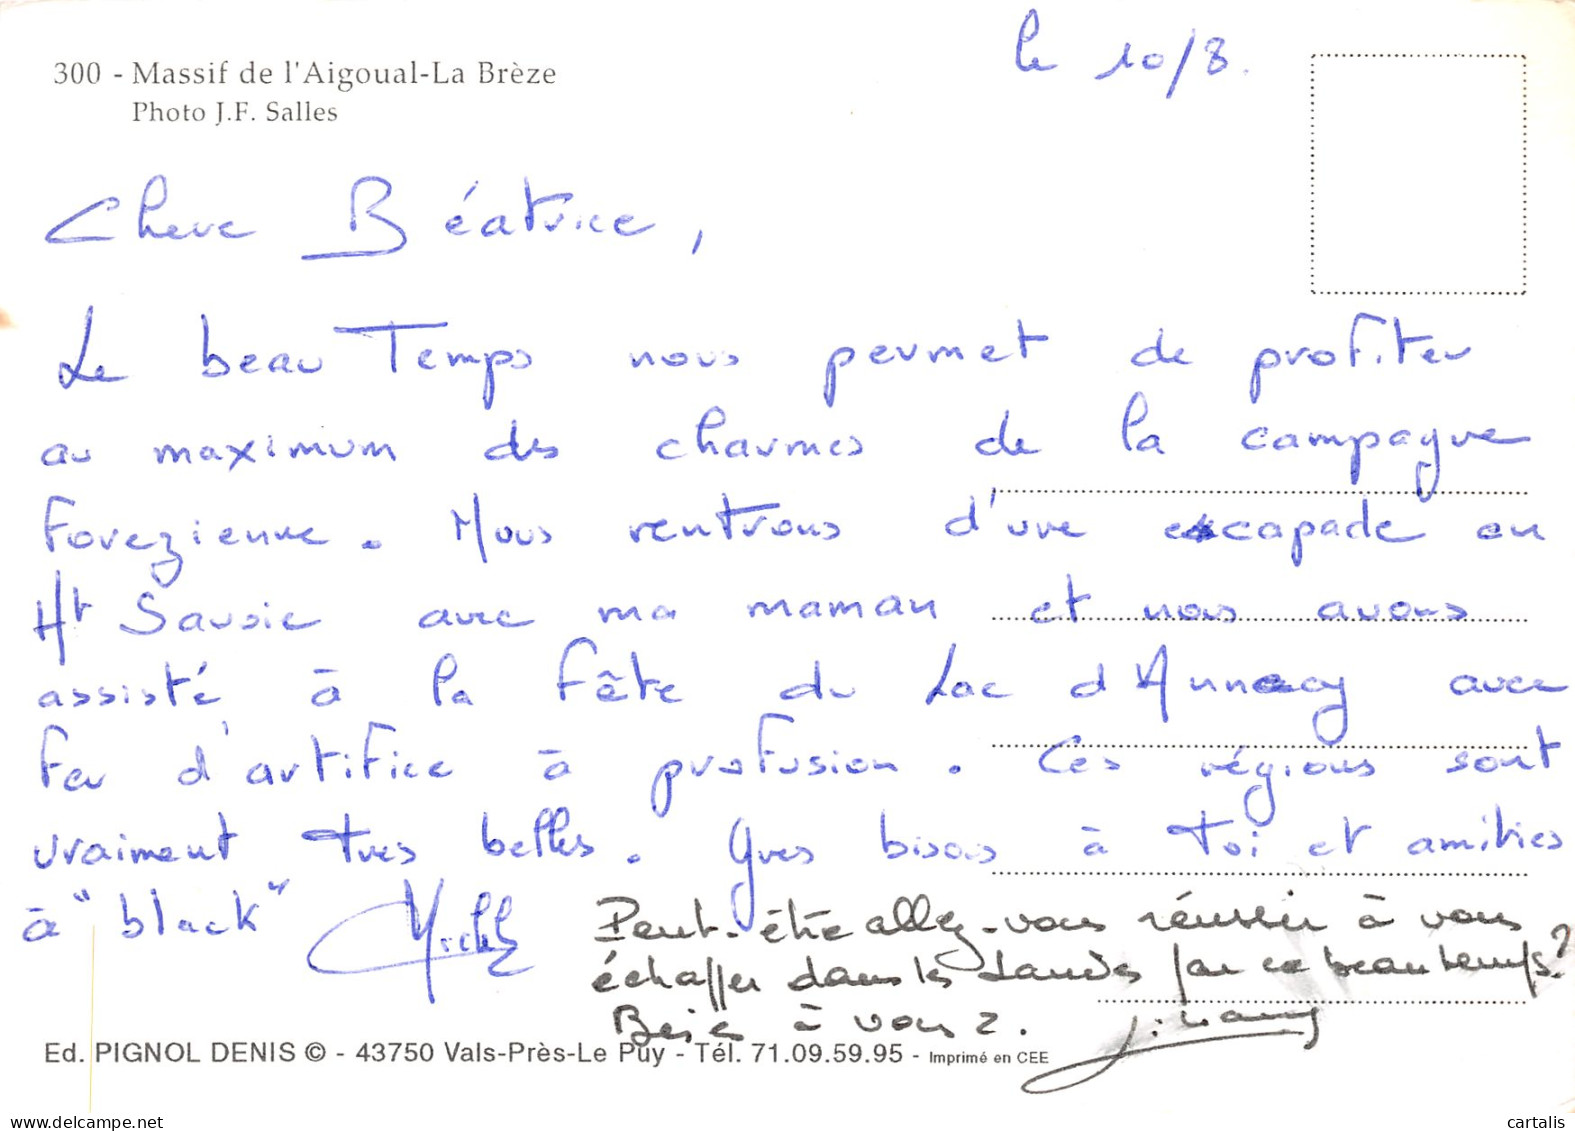 300 - Massif de l'Aigoual-La Brèze
Photo J.F. Salles
le 10/8.
Chere Béatrice,
Le beau Temps nous permet de profiter
au maximum des charmes de la campagne
Forezienne. Nous rentrons d'une escapade en
Ht Savoie avec ma maman et nous avons
assisté à la fête du Lac d'Annecy avec
feu d'artifice à profusion. Ces régions sont
vraiment très belles. Gros bisous à Toi et amitiés
à "black" Michel
Peut-être allez-vous réussir à vous
échapper dans les Landes par ce beau temps?
Bises à vous 2.
Ed. PIGNOL DENIS © - 43750 Vals-Près-Le Puy - Tél. 71.09.59.95 - Imprimé en CEE
delcampe.net
cartalis